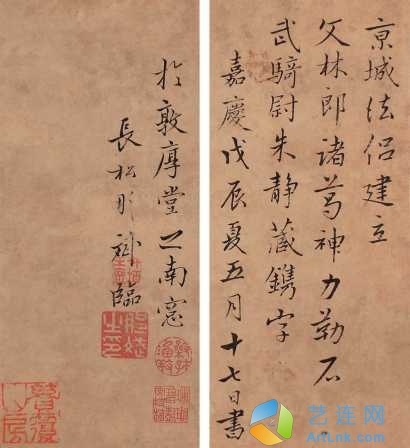 京城法侶建立
文林郎諸葛神力勒石
武騎尉朱靜藏鐫字
嘉慶戊辰夏五月十七日書
於敦厚堂之南窓
長松臨
艺连网
ArtLink.com